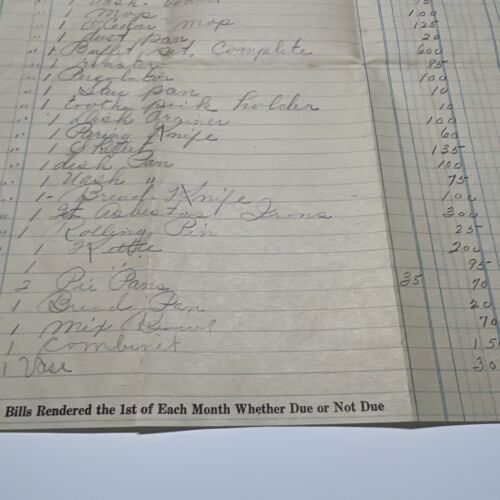 " 1 Wash-board 75
" 1 Mop 100
" 1 O'Cedar Mop 125
" 1 dust pan 20
" 1 Buffet, set, Complete 600
" 1 roaster 85
" 1 Percolator 100
" 1 Stew pan 10
" 1 tooth pick holder 10
" 1 Dish drainer 100
" 1 Paring Knife 60
" 1 135
" 1 dish Pan 100
" 1 Wash " 75
" 1 - Bread Knife 100
" 1 Asbestos Irons 300
" 1 Rolling Pin 25
" 1 Kettle 200
1 " 95
2 Pie Pans 35 70
1 Bread Pan 20
1 Mix Bowl 70
1 Combinet 15
1 Vase 30
Bills Rendered the 1st of Each Month Whether Due or Not Due